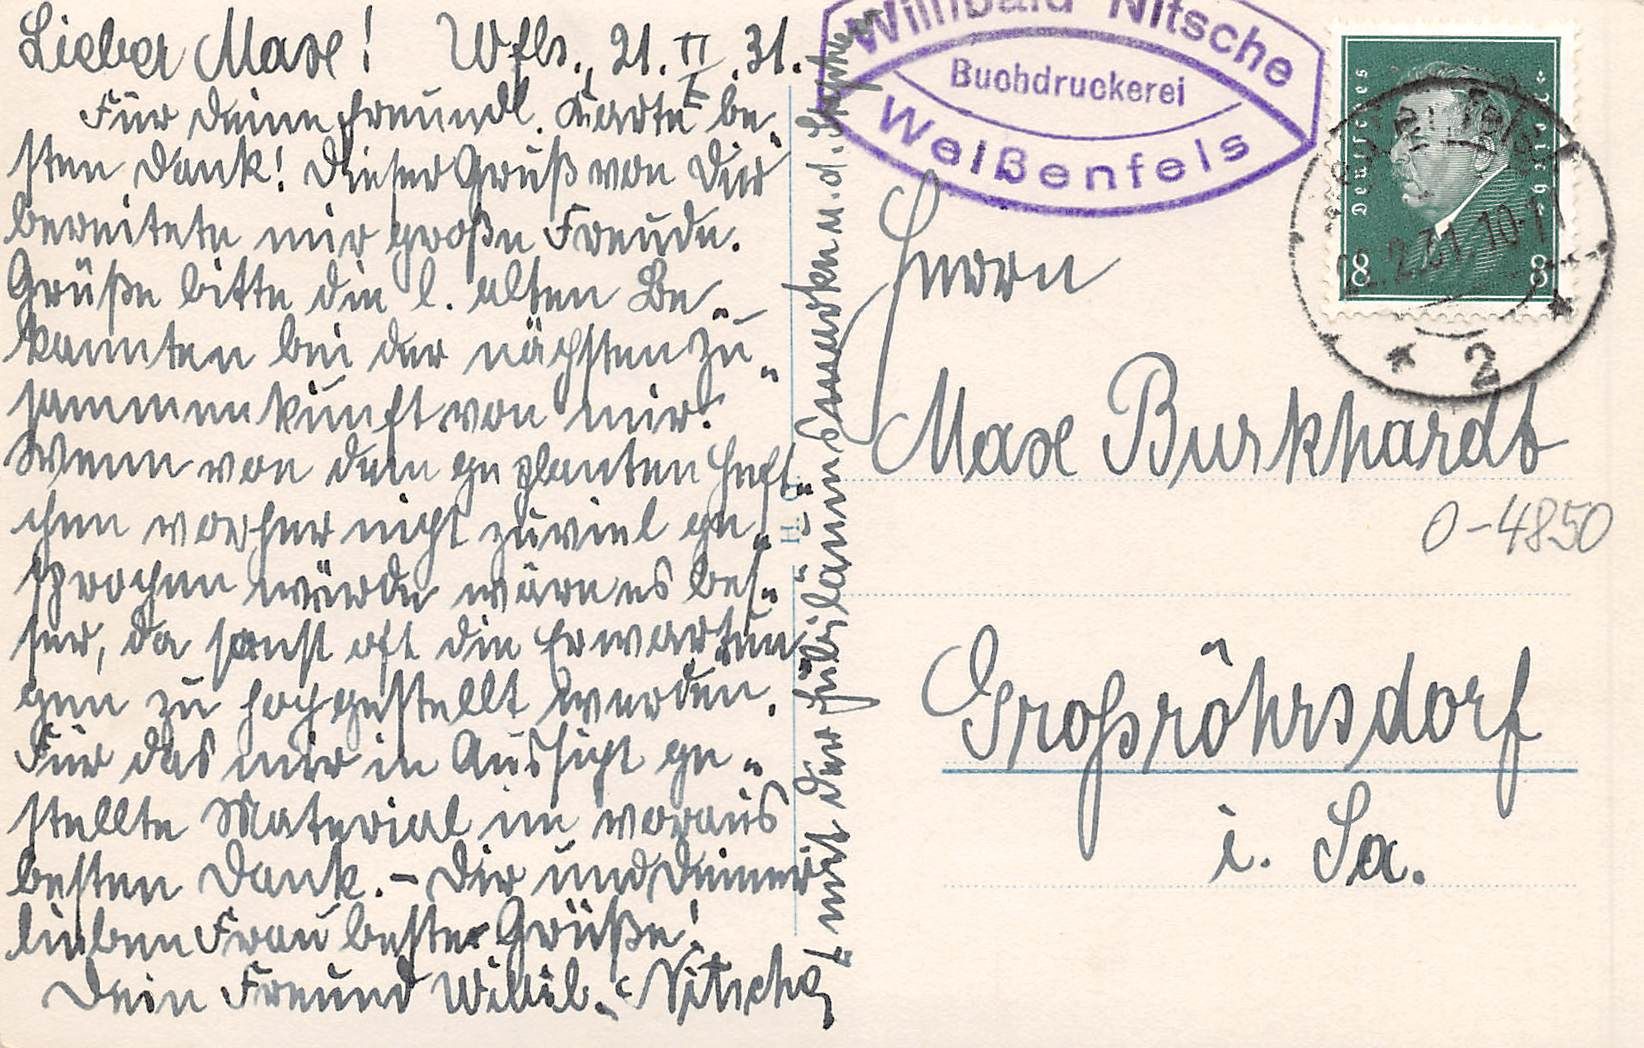 Lieber Max! Wfls., 21. II. 31.
Für deine freundl. Karte be-
sten Dank! Dieser Gruß von Dir
bereitete mir große Freude.
Grüße bitte die l. alten Be-
kannten bei der nächsten Zu-
sammenkunft von mir!
Wenn von dem geplanten Heft-
chen vorher nicht zuviel ge-
sprochen würde wäre es bes-
ser, da sonst oft die Erwartun-
gen zu hoch gestellt werden.
Für das mir in Aussicht ge-
stellte Material im voraus
besten Dank. – Dir und Deiner
lieben Frau beste Grüße!
Dein Freund Willib. Nitsche
mit der Jubiläums
u. d.
Willibald Nitsche
Buchdruckerei
Weißenfels
Deutsches Reich
8 8
2.31 10-11
* 2 *
Herrn
Max Burkhardt
O-4850
Großröhrsdorf
i. Sa.